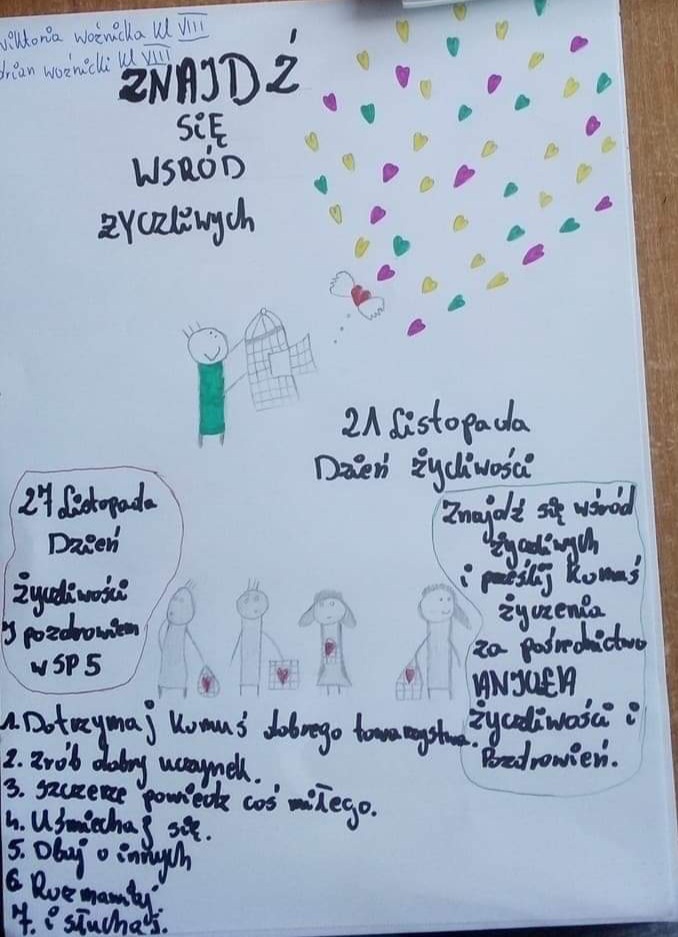 Wiktoria Woźnicka kl VIII
drian Woźnicki kl VIII
ZNAJDŹ
SIĘ
WSRÓD
ZYCZLIWYCH
21 Listopada
Dzień żyčliwości
27 Listopada
Dzień
życzliwości
I pozdrowień
w SP 5
Znajdź się wśród
życzliwych
i prześlij komuś
życzenia
za pośrednictwo
ANIOŁA
życzliwości i
Pozdrowień.
1. Dotrzymaj komuś dobrego towarzystwa.
2. Zrób dobry uczynek.
3. Szczerze powiedz coś miłego.
4. Uśmiechaj się.
5. Dbaj o innych
6. Rozmawiaj
7. i słuchaj.